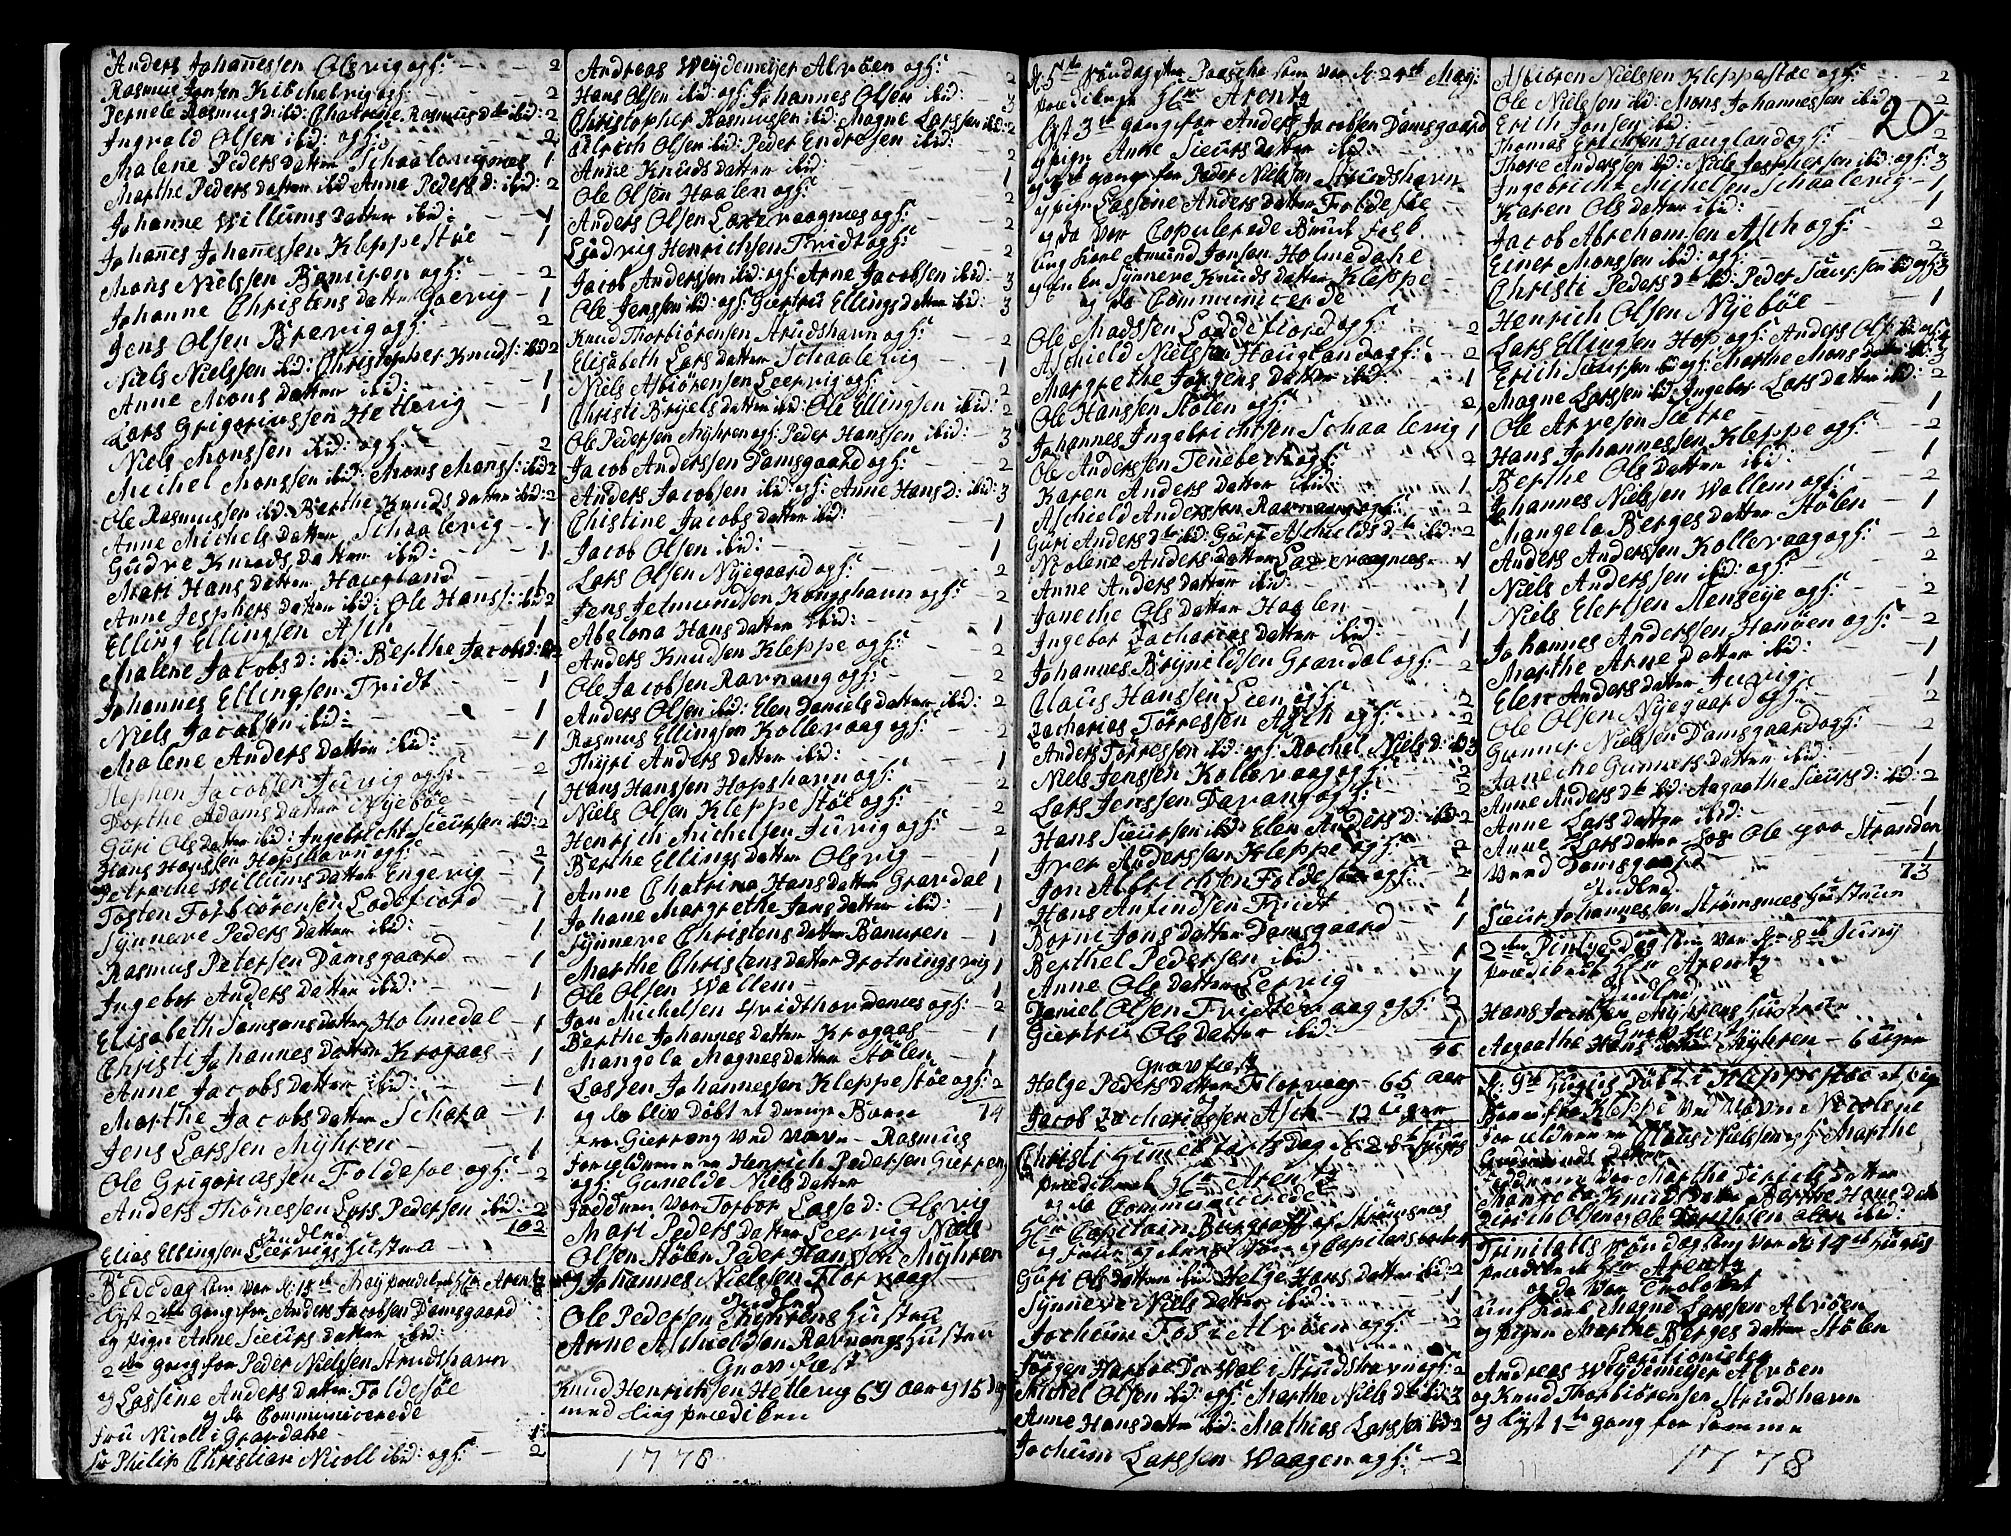 Anders Johannessen Olsvig og h: - 2
Rasmus Jansen Kibchelvig og h: - 2
Pernele Rasmus d: ibid: Chatrine Rasmus dtr ibid: 2
Ingvald Olsen ibid: og h: - 2
Malene Peders datter Schaalevignes 1
Marthe Peders datter ibid Anne Peders d: ibid: 2
Johanne Willums datter ibid: - 1
Johanes Johanessen Kleppestøe - 1
Mons Nielssen Banuren og h: - 2
Johanne Christens datter Goevig - 1
Jens Olsen Brevig og h: - 2
Niels Nielssen ibid: Christopher Knuds: ibid 2
Anne Mons datter ibid: - 1
Lars Grigoriussen Hetlevig - 1
Niels Monssen ibid: og h: - 2
Michel Monssen ibid: Mons Mons: ibid 2
Ole Rasmussen ibid: Berthe Knuds datter ibid: 2
Anne Michels datter Schaalevig - 1
Gudve Knuds datter ibid: - 1
Mari Hans datter Haugland - 1
Anne Jesphers datter ibid: Ole Hans: ibid 2
Elling Ellingsen Asch - 1
Malene Jacobs d: ibid: Berthe Jacobs d:
Johannes Ellingsen Tvidt - 1
Niels Jacobsen ibid: - 1
Malene Anders datter ibid: - 1
Stephen Jacobsen Juvig og h: - 2
Dorthe Adams datter Nyebøe - 1
Guri Ols datter ibid: Ingebricht Sieursen ibid: 2
Hans Hanssen Hopshavn og h: - 2
Petroche Willums datter Engevig - 1
Tosten Torbiørensen Lodefiord - 1
Synneve Peders datter ibid: - 1
Rasmus Petersen Damsgaard - 1
Ingebor Anders datter ibid: - 1
Elisabeth Samsons datter Holmedal - 1
Christi Johannes datter Krogaas - 1
Anne Jacobs datter ibid: - 1
Marthe Jacobs datter Schora - 1
Jens Larssen Myhren - 1
Ole Grigoriassen Foldesøe og h: - 2
Anders Thønessen Lars Pedersen ibid: 2
102
Indled
Elias Ellingsen Leervigs Hustrue
Bededag som var d: 15de May prædikede Hr Arentz
Lyst 2den gang for Anders Jacobsen Damsgaard
og pigen Anne Sieurs datter ibid:
2den gang for Peder Nielsen Strudshavn
og Lassine Anders datter Foldesøe
og da Communicerede
Fru Nicoll i Gravdahl - 1
Sr Philip Christian Nicoll ibid: og h: - 2
Andreas Weydemeyer Alvøen og h: 2
Hans Olsen ibid: og h: Johannes Olsen ibid: - 3
Christopher Rasmussen ibid: Magne Larssen ibid: 2
Ulrich Olsen ibid: Peder Endresen ibid: 2
Anne Knuds datter ibid: - 1
Ole Olsen Haalen og h: 2
Anders Olsen Loxevaagnes og h: - 2
Ludvig Henrichsen Tvidt og h: - 2
Jacob Anderssen ibid: og h: Arne Jacobsen ibid: - 3
Ole Jenssen ibid: og h: Giertru Ellings datter ibid: 3
Knud Thorbiørensen Strudshavn og h: - 2
Elisabeth Lars datter Schaalevig - 1
Niels Asbiørensen Leervig og h: - 2
Christi Bryels datter ibid: Ole Ellingsen ibid: 2
Ole Pedersen Myhren og h: Peder Hanssen ibid: - 3
Jacob Anderssen Damsgaard og h: - 2
Anders Jacobsen ibid: og h: Anne Hans D: ibid: 3
Christine Jacobs datter ibid: - 1
Jacob Olsen ibid: - 1
Lars Olsen Nyegaard og h: - 2
Jens Jelmundsen Kongshavn og h: - 2
Abelona Hans datter ibid: - 1
Anders Knudsen Kleppe og h: - 2
Ole Jacobsen Ravnang og h: - 2
Anders Olsen ibid: Elen Daniels datter ibid: 2
Rasmus Ellingsen Kollevaag og h: 2
Thyri Anders datter ibid: - 1
Hans Hanssen Hopshavn og h: - 2
Niels Olsen Kleppestøe og h: - 2
Henrich Michelsen Juvig og h: - 2
Berthe Ellings datter Olsvig - 1
Anne Chatrina Hans datter Gravdal 1
Johane Margrethe Jans datter ibid: - 1
Synneve Christens datter Banuren - 1
Marthe Christens datter Drotningsvig 1
Ole Olsen Wallem - 1
Jon Michelsen Qvidthordenes og h: - 2
Berthe Johannes datter Krogaas - 1
Mangela Magnes datter Støhlen - 1
Lassen Johannessen Kleppestøe og h: 2
og da blev døbt et drenge Barn 74
fra Gierreng ved Navn - Rasmus
Foreldrene er Henrich Pedersen Gierreng
og h: Gunelde Niels datter
Faddere var Torbor Lasse d: Olsvig
Mari Peders datter Leervig Niels
Olsen Støhlen Peder Hanssen Myhren
og Johannes Nielssen Florvaag
Indled
Ole Pedersen Myhrens Hustru
Arne Aschieldsen Ravnangs Hustru
Grav Fæst
Knud Henrichsen Hetlevig 69 aar og 15 dag
med lig prædiken
1778
d: 5te Søndag efter Paasche som var d: 24de May:
prædikede Hr Arentz
lyst 3de gang for Anders Jacobsen Damsgaard
og pigen Anne Sieurs datter ibid:
og 3de gang for Peder Nielsen Strudshavn
og pigen Lassine Anders datter Foldesøe
og da var Copulerede Brude Folk
ung karl Amund Jonsen Holmedahl
og enken Synneve Knuds datter Kleppe
og da Communicerede
Ole Madssen Loddefiord og h: 2
Aschield Nielssen Haugland og h: - 2
Margrethe Jørgens datter ibid: 1
Ole Hanssen Stølen og h: - 2
Johannes Ingebrichtsen Schaalevig 1
Ole Anderssen Tenebech og h: 2
Karen Anders datter ibid: 1
Aschield Anderssen Ravnang og h: 2
Guri Anders dr ibid: Guri Aschields dr ibid: 2
Nolene Anders datter Loxevaagnes - 1
Anne Anders datter ibid: - 1
Janeche Ols datter Haalen - 1
Ingebor Zacharias datter ibid: - 1
Johannes Brynildsen Gravdal og h: - 2
Claus Hanssen Leen og h: 2
Zacharias Tørressen Asch og h: 2
Anders Torressen ibid: og h: Rachel Niels d: ibid 3
Niels Jenssen Kollevaag og h: 2
Lars Jenssen Davang og h: - 2
Hans Sieursen ibid: Elen Anders d: ibid: 2
Iver Anderssen Kleppe og h: - 2
Jon Albrichtsen Foldesøe og h: - 2
Hans Anfindsen Tvidt - 1
Borni Jons datter Damsgaard - 1
Berthel Pedersen ibid: - 1
Anne Ols datter Leervig 1
Daniel Olsen Tvidtevaag og h: 2
Giertru Ols datter ibid: 1
46
Grav fæst
Helge Peders datter Florvaag - 65 aar
Jacob Zachariassen Asch - 12 uger
Christi Himmelfarts Dag d: 28de
prædikede Hr Arentz
og da Communicerede
Hr Capitain Burgraff af Strømsnes
Guri Ols datter ibid Helge Hans datter ibid: 2
Synneve Niels datter ibid: - 1
Jochum Fos i Alvøen og h: - 2
Jørgen Hartvedt Strudshavn og h: 2
Michel Olsen ibid: og h: Marthe Niels dr ibid: 3
Anne Hans datter ibid: Mathias Larssen ibid: 2
Jochum Larssen Waagen og h: - 2
Asbiøren Nielssen Kleppestøe og h: - 2
Ole Nielssen ibid: Mons Johannessen ibid: 2
20
Erich Jonsen ibid:
Thomas Erichsen Haugland og h: 2
Thore Anderssen ibid: Niels Jesphersen ibid: og h: 3
Ingebricht Michelsen Schaalevig - 1
Karen Ols datter ibid: - 1
Jacob Abrehamsen Asch og h: - 2
Einer Monssen ibid: og h: - 2
Christi Peders dr ibid: Peder Sieursen ibid og h: 3
Henrich Olsen Nyebøe - 1
Lars Ellingsen Hop og h: Anders Ols: ibid: og h: 4
Erich Sieursen ibid og h: Marthe Mons datter ibid: 3
Magne Larssen ibid: Ingebor Lars datter ibid: 2
Ole Arvesen Sletre - 1
Hans Johannessen Kleppe og h: - 2
Berthe Ols datter ibid: - 1
Johannes Nielssen Wallem og h: - 2
Mangela Berges datter Støhlen - 1
Anders Anderssen Kollevaag og h: - 2
Niels Anderssen ibid: og h: - 2
Niels Elertsen Mengeije og h: - 2
Johannes Anderssen Hanøen og h: - 2
Marthe Arne datter ibid: - 1
Elen Anders datter Juvig - 1
Ole Olsen Nyegaard og h: - 2
Gunner Nielssen Damsgaard og h: - 2
Janeche Gunners datter ibid: - 1
Anne Anders dr ibid: Aagaathe Sieurs d: ibid: 2
Anne Lars datter ibid: - 1
Anne Lars datter hos Ole paa Stranden
ved Damsgaard - 1
73
Indled
Sieur Johannessen Strømsnes Hustrue
2den Pintze Dag som var d: 8de Juny
prædikede Hr Arentz
Indled
Hans Jonsen Myhrens Hustrue
Grav fæst
Aagaathe Hans datter Myhren - 6 uger
d: 9de hujus døbt i Kleppestøe et pige
Barn fra Kleppe ved Navn Nicolene
Forældrene er Claus Nielssen og h: Marthe
Faddere var Marthe Dirichs datter
Mangela Knuds datter Berthe Hans datter
Ulrich Olsen og Ole Torchilsen alle ibid:
Trinitatis Søndag som var d: 14de hujus
prædikede Hr Arentz
og da var Trolovet
ung karl Magne Larssen Alvøen
og pigen Marthe Berges datter Støhlen
Cautionister
Andreas Weydemeyer Alvøen
og Knud Thorbiørensen Strudshavn
og lyst 1te gang for samme
1778